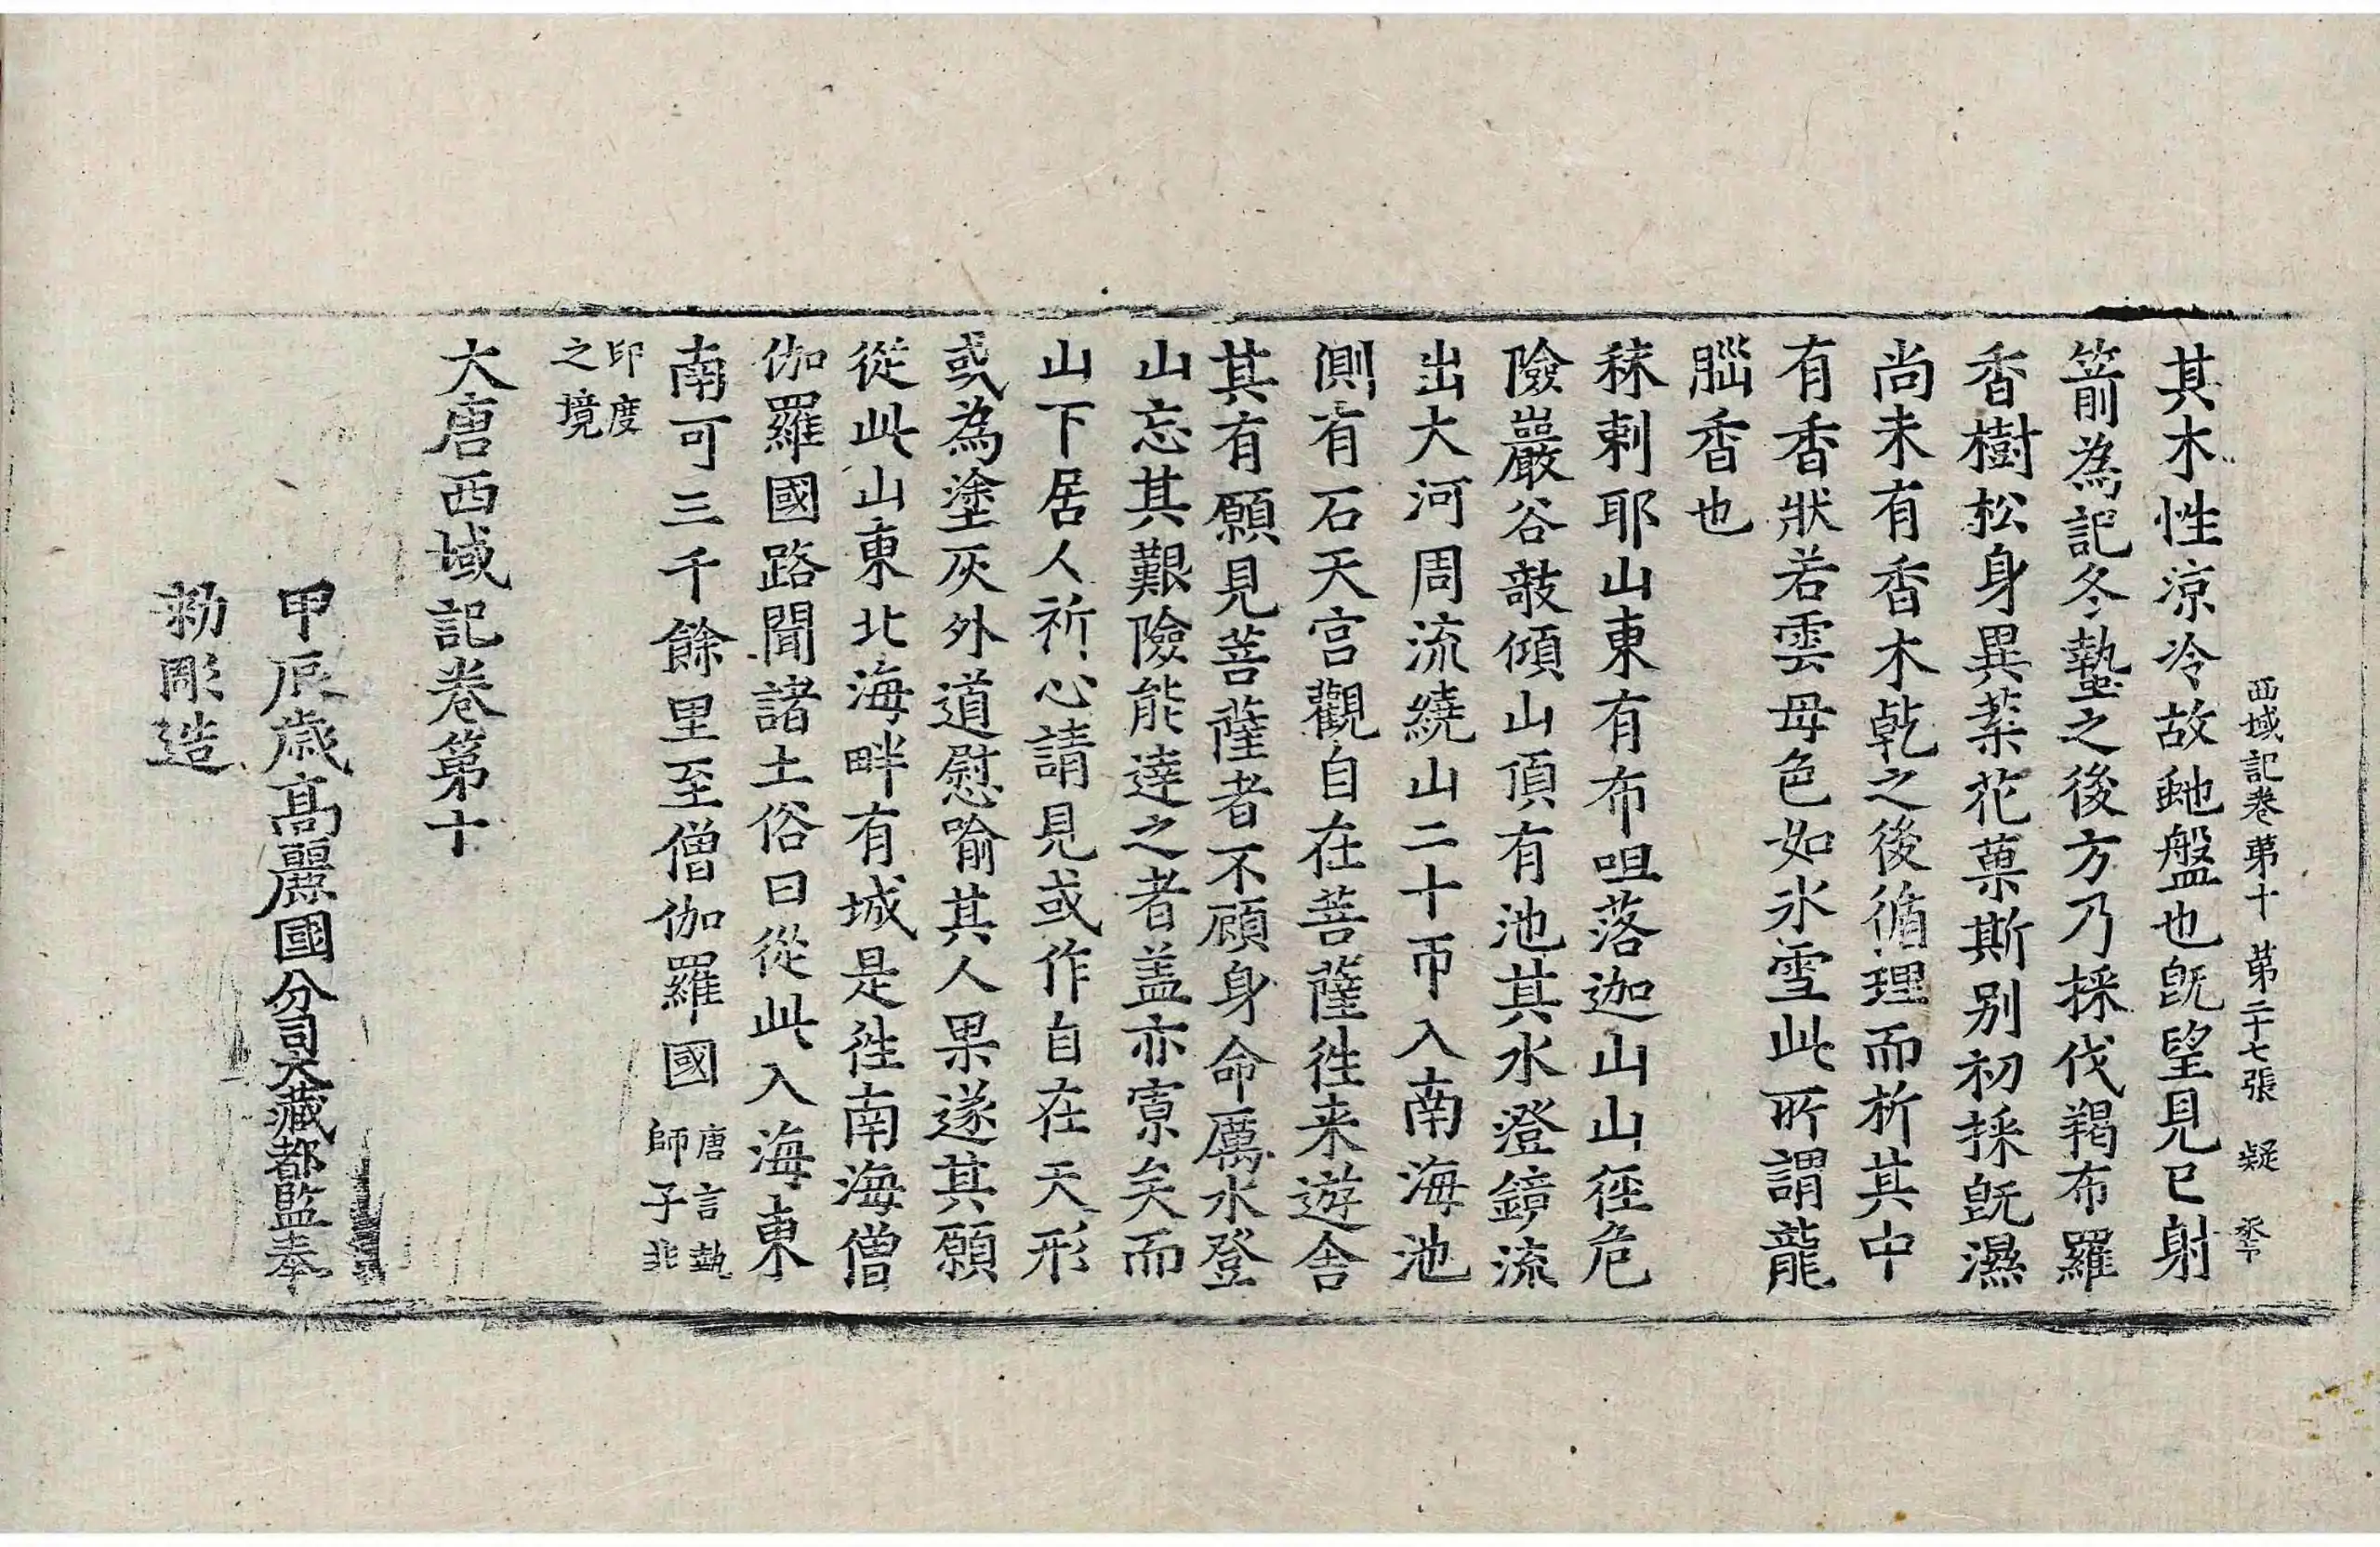 西域記卷第十 第二十七張 疑
其木性涼冷故虵盤也旣望見已射
箭為記冬蟄之後方乃採伐羯布羅
香樹松身異葉花菓斯别初採旣濕
尚未有香木乾之後循理而析其中
有香狀若雲母色如氷雪此所謂龍
腦香也
秣剌耶山東有布呾落迦山山徑危
險巖谷敧傾山頂有池其水澄鏡流
出大河周流繞山二十帀入南海池
側有石天宫觀自在菩薩徃来遊舍
其有願見菩薩者不顧身命厲水登
山忘其艱險能達之者盖亦寡矣而
山下居人祈心請見或作自在天形
或為塗灰外道慰喻其人果遂其願
從此山東北海畔有城是徃南海僧
伽羅國路聞諸土俗曰從此入海東
南可三千餘里至僧伽羅國 唐言執師子非
印度之境
大唐西域記卷第十
甲辰歳髙麗國分司大藏都監奉
勅彫造